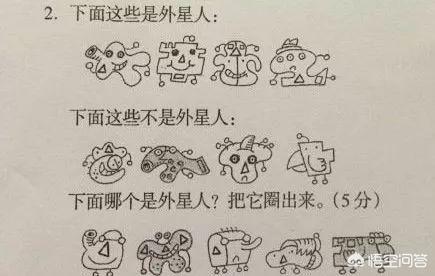 2. 下面这些是外星人:
下面这些不是外星人:
下面哪个是外星人? 把它圈出来。(5分)
悟空问答